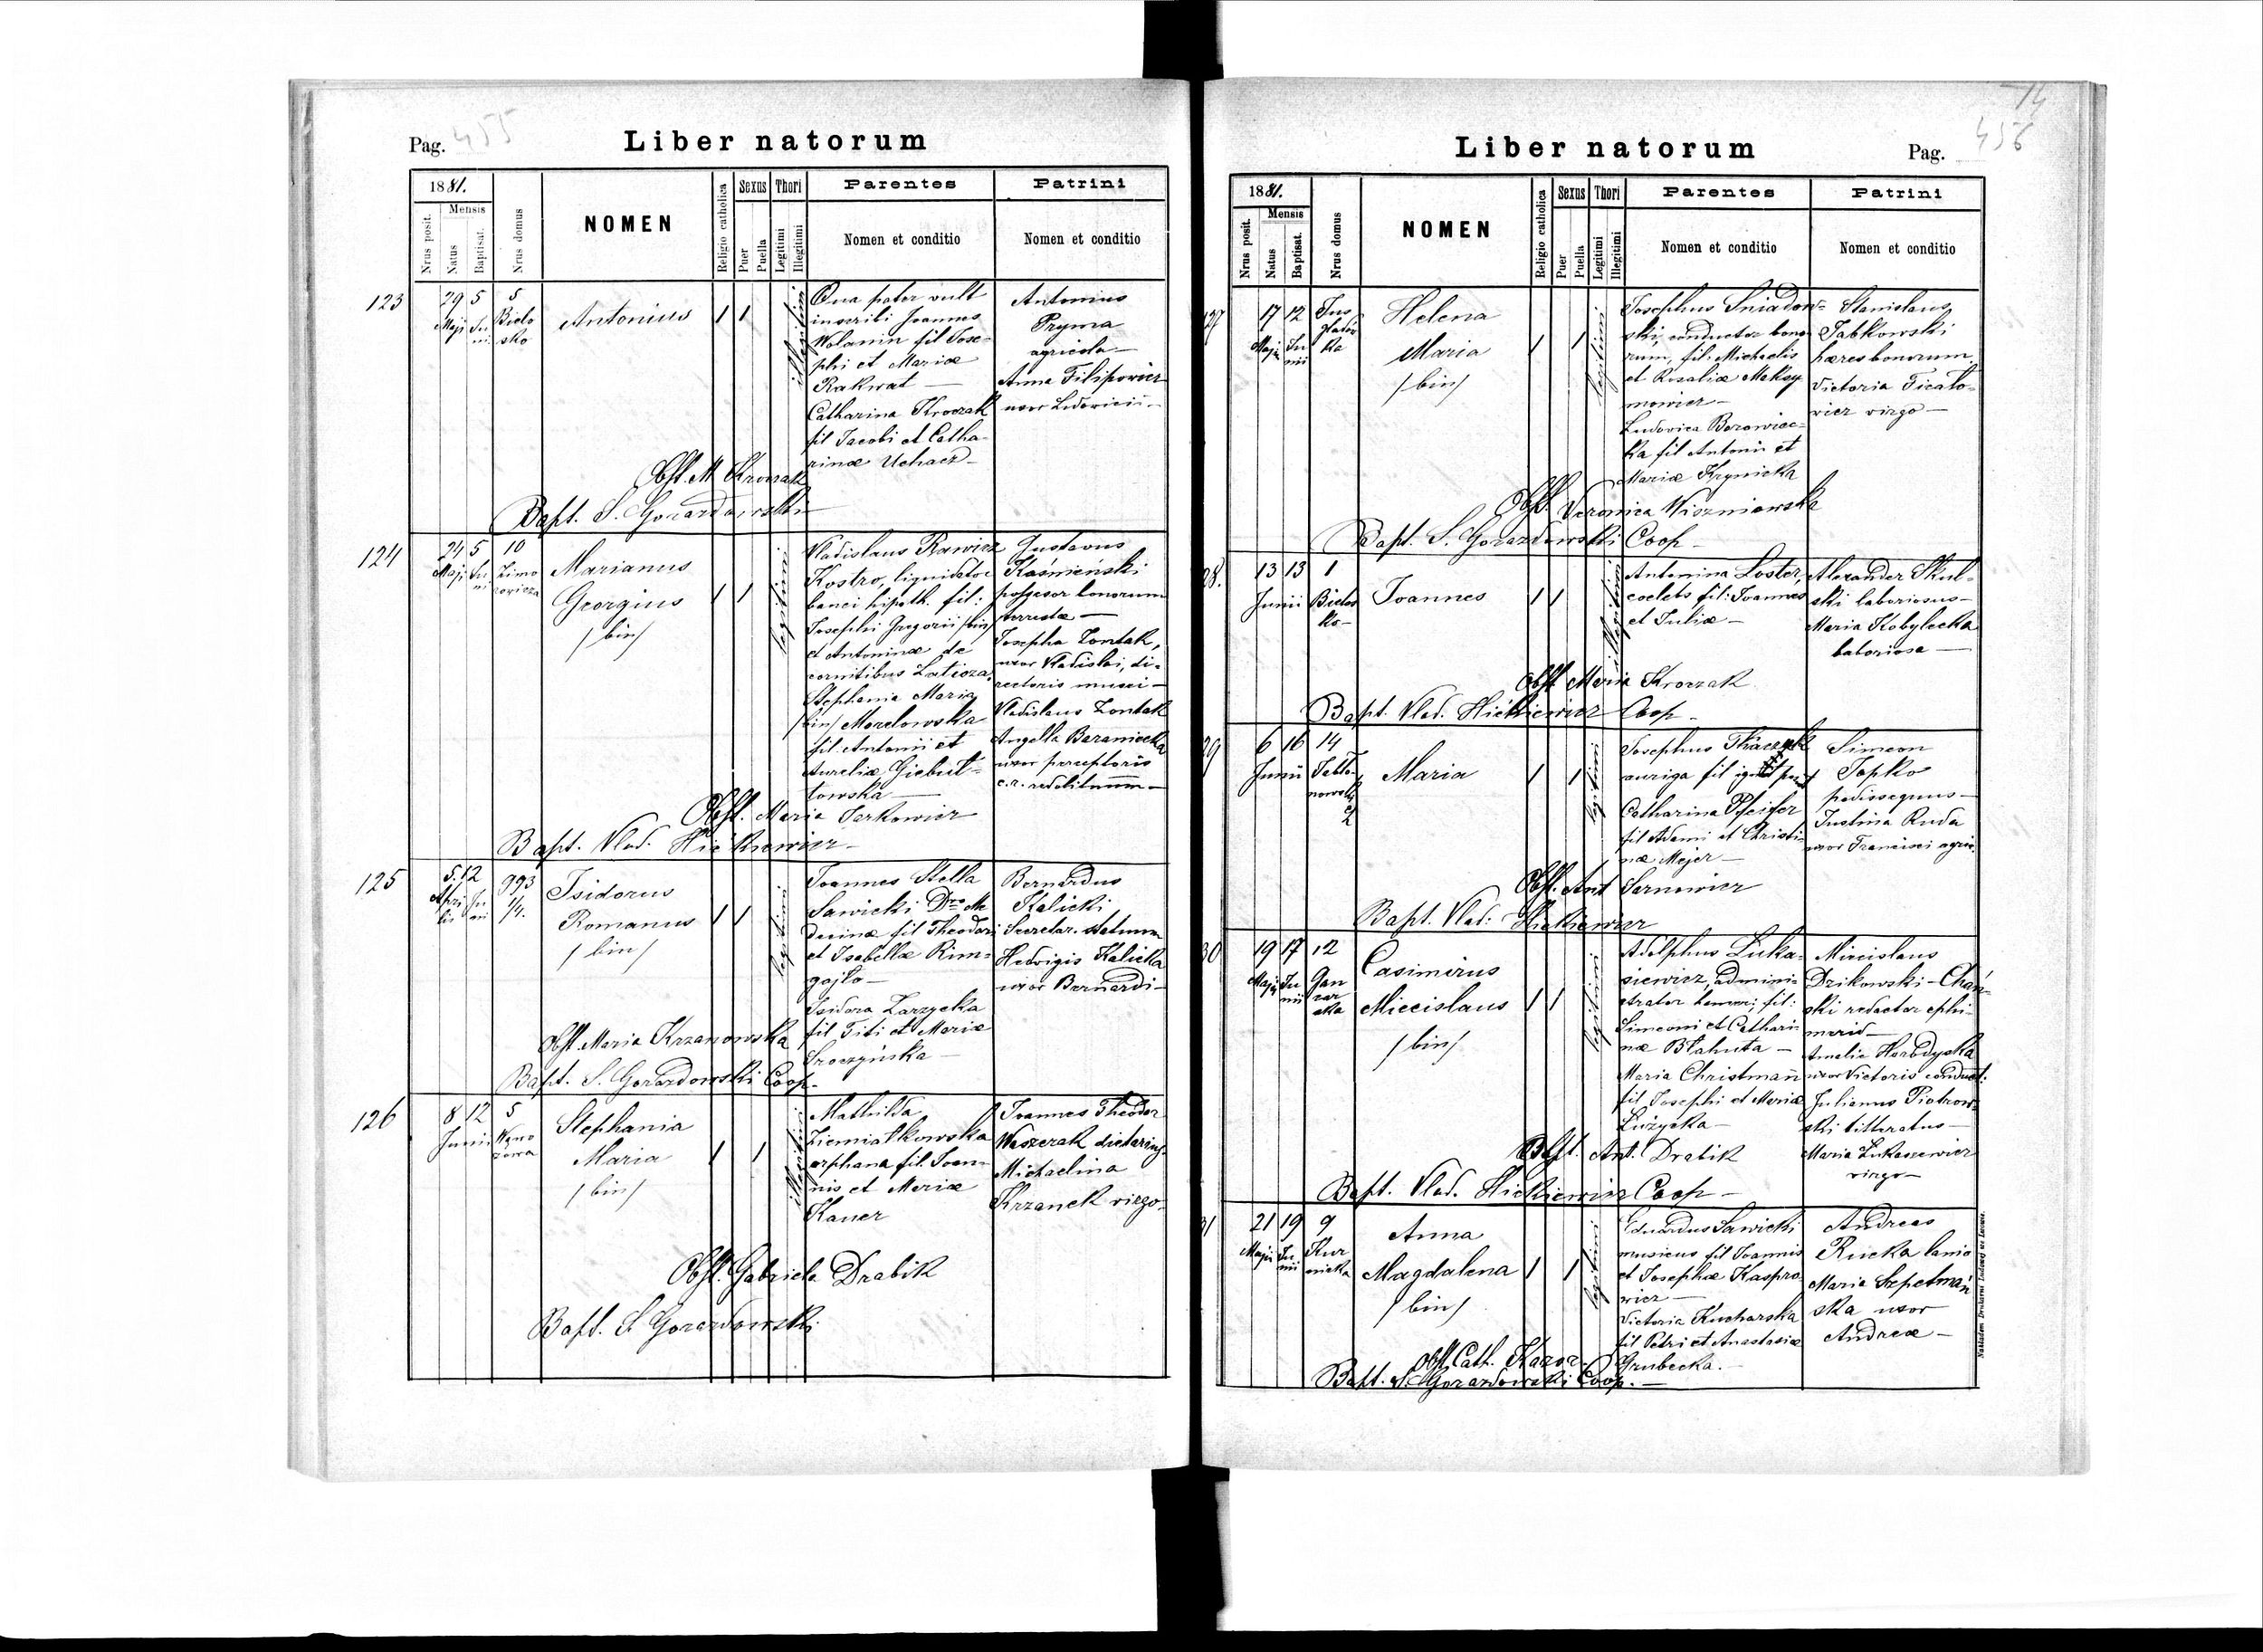 Pag. 455
Liber natorum
1881.
Mensis
Nrus posit.
Natus
Baptisat.
Nrus domus
NOMEN
Religio catholica
Sexus
Puer
Puella
Thori
Legitimi
Illegitimi
Parentes
Nomen et conditio
Patrini
Nomen et conditio
123
29 5
Maji Ju
nii
5
Bielo
sko
Antonius
1 1
illegitimi
Qua pater vult
inscribi Joannes
Wolanin fil Jose-
phi et Mariæ
Rakwat —
Catharina Kroczak
fil Jacobi et Catha-
rinæ Uchacz —
Antonius
Pryma
agricola —
Anna Filipowicz
uxor Ludovici —
Obst. M Kroczak
Bapt. S. Gorazdowski
124
24 5
Maji Ju
nii
10
Zimo
rowicza
Marianus
Georgius
/bin/
1 1
legitimi
Vladislaus Rawicz
Kostro, liquidator
banci hipoth. fil:
Josephi Gregorii /bin/
et Antoninæ de
comitibus
Stephania Maria
/bin/ Morelowska
fil: Antonii et
Aureliæ Giebuł-
towska —
Gustavus
Kaśmieński
possessor bonorum
terrestæ —
Josepha Zontak,
uxor Vladislai, di-
rectoris musei —
Vladislaus Zontak
Angella Baraniecka
uxor perceptoris
c.r.
Obst. Maria Serkowicz
Bapt. Vlad. Hickiewicz —
125
5. 12
Apri Ju
lis nii
993
1/4.
Isidorus
Romanus
/bin/
1 1
legitimi
Joannes Stella
Sawicki Dr. Me
dicinæ fil Theodori
et Isabellæ Rim-
gajło —
Isidora Zarzycka
fil Titi et Mariæ
Sroczyńska —
Bernardus
Kalicki
Secretar. statuum
Hedvigis Kalicka
uxor Bernardi —
Obst. Maria Krzanowska
Bapt. S. Gorazdowski Coop. —
126
8 12
Junii
5
Wąwo
zowa
Stephania
Maria
/bin/
1 1
illegitimi
Mathilda
Ziemiałkowska
orphana fil. Joan-
nis et Mariæ
Kauer
Joannes Theodor
Waszczak dietarius
Michaelina
Krzanek virgo —
Obst. Gabriela Drabik
Bapt. S Gorazdowski
74
456
Liber natorum
Pag.
1881.
Mensis
Nrus posit.
Natus
Baptisat.
Nrus domus
NOMEN
Religio catholica
Sexus
Puer
Puella
Thori
Legitimi
Illegitimi
Parentes
Nomen et conditio
Patrini
Nomen et conditio
27
17 12
Maji Ju
nii
Helena
Maria
/bin/
1 1
legitimi
Josephus Śniadow-
ski, conductor bono
rum, fil: Michaelis
et Rosaliæ Maksy
mowicz —
Ludovica Borowiec-
ka fil Antonii et
Mariæ Krynicka
Stanislaus
Jabkowski
hæres bonorum
Victoria Ficało-
wicz virgo —
Obst. Veronica Wiszniewska
Bapt. S. Gorazdowski Coop —
28.
13 13
Junii
1
Bielos
ko —
Joannes
1 1
illegitimi
Antonina Loster,
coelebs fil: Joannes
et Juliæ —
Alexander Skul-
ski laboriosus —
Maria Kobylecka
laboriosa —
Obst. Maria Kroczak
Bapt. Vlad. Hickiewicz Coop —
29
6 16
Junii
14
Jabło-
nowsk
Maria
1 1
legitimi
Josephus Tkaczyk
auriga fil
Catharina Pfeifer
fil Adami et Christi-
næ Mejer —
Simeon
Sopko
pedissequus —
Justina Ruda
uxor Francisci agric.
Obst. Ant Sarnowicz
Bapt. Vlad: Hickiewicz
30
19 17
Maji Ju
nii
12
Gan
car
ska
Casimirus
Miecislaus
/bin/
1 1
legitimi
Adolphus Łuka-
siewicz, admini-
strator fil:
Simeoni et Cathari-
næ Błahuta —
Maria Christmann
fil Josephi et Mariæ
Łużycka —
Miecislaus
Dzikowski-Chań-
ski redactor ephi-
merid —
Amalia Horodyska
uxor Victoris conduct:
Julianus Piotrow-
ski litteratus —
Maria Łukasiewicz
virgo —
Obst. Ant. Drabik
Bapt. Vlad. Hickiewicz Coop —
31
21 19
Maji Ju
nii
9
Kur
nicka
Anna
Magdalena
/bin/
1 1
legitimi
Eduardus Sawicki
musicus fil Joannis
et Josephæ Kaspro
wicz —
Victoria Kucharska
fil Petri et Anastasiæ
Grubecka. —
Andreas
Rucka lanio
Maria Szpetmań
ska uxor
Andreæ —
Obst. Cath. Kaczor
Bapt. S. Gorazdowski Coop. —
Nakładem Drukarni Ludowej we Lwowie.